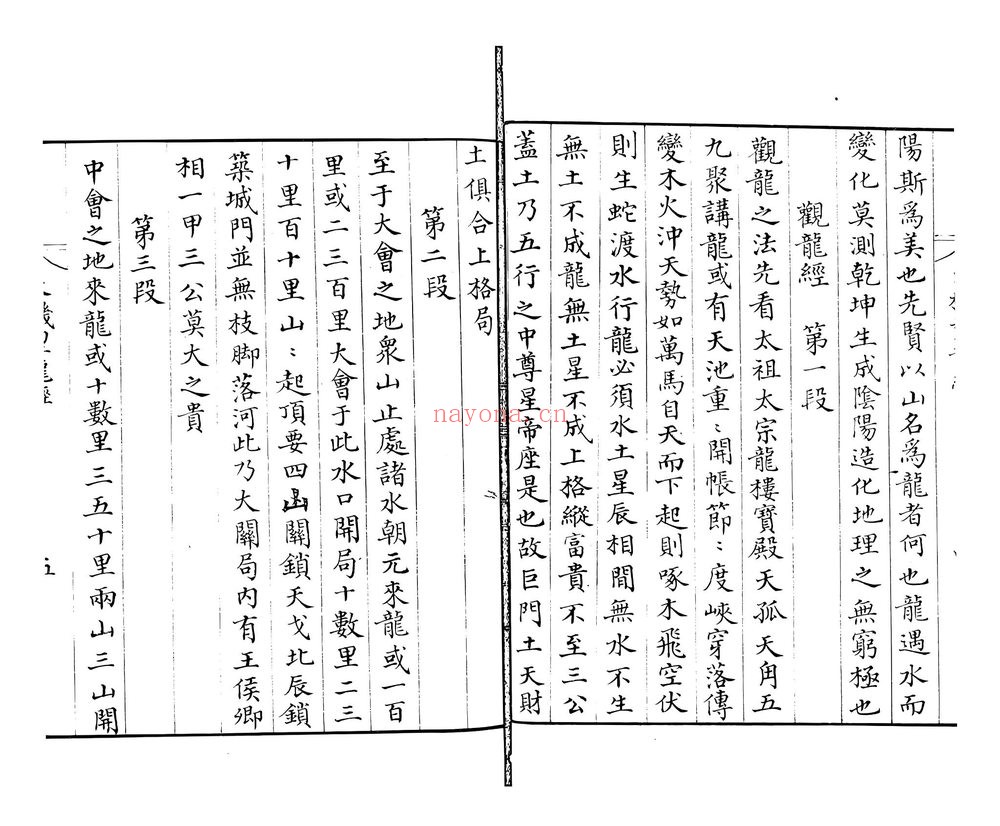 陽斯爲美也先賢以山名爲龍者何也龍遇水而
變化莫測乾坤生成陰陽造化地理之無窮極也
觀龍經　第一段
觀龍之法先看太祖太宗龍樓寶殿天孤天角五
九聚講龍或有天池重〻開帳節〻度峽穿落傳
變木火沖天勢如萬馬自天而下起則啄木飛空伏
則生蛇渡水行龍必須水土星辰相間無水不生
無土不成龍無土星不成上格縱富貴不至三公
蓋土乃五行之中尊星帝座是也故巨門土天財
土俱合上格局
第二段
至于大會之地衆山止處諸水朝元來龍或一百
里或二三百里大會于此水口開局十數里二三
十里百十里山〻起頂要四關鎖天戈北辰鎖
築城門並無枝脚落河此乃大關局內有王侯卿
相一甲三公莫大之貴
第三段
中會之地來龍或十數里三五十里兩山三山開
五
nayona.cn